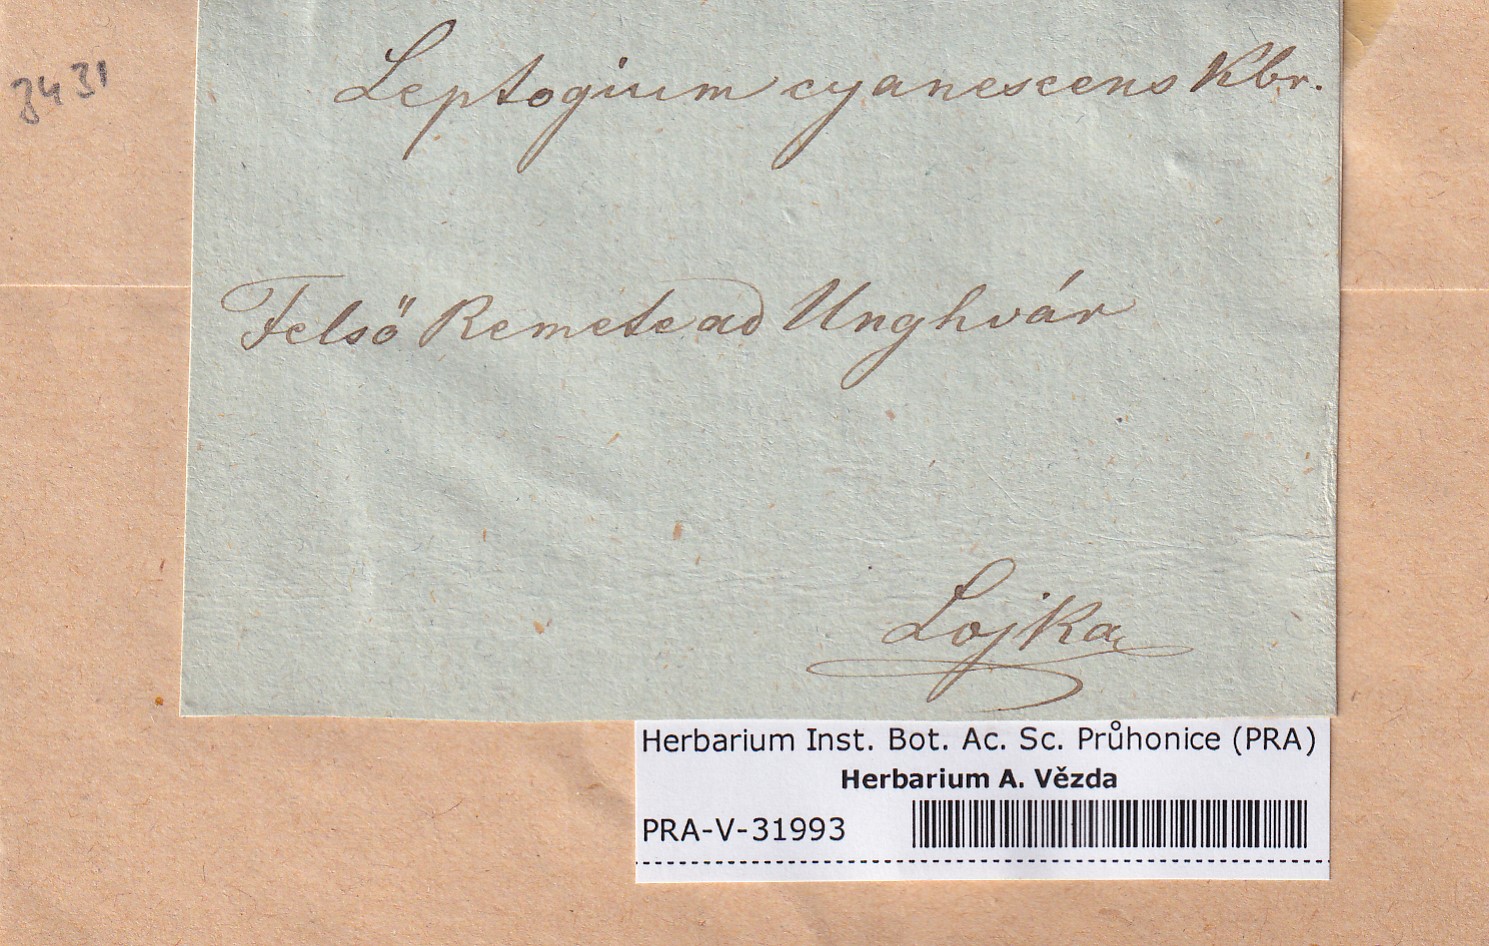 3431
Leptogium cyanescens Kbr.
Felső Remete ad Unghvár
Lojka
Herbarium Inst. Bot. Ac. Sc. Průhonice (PRA)
Herbarium A. Vězda
PRA-V-31993